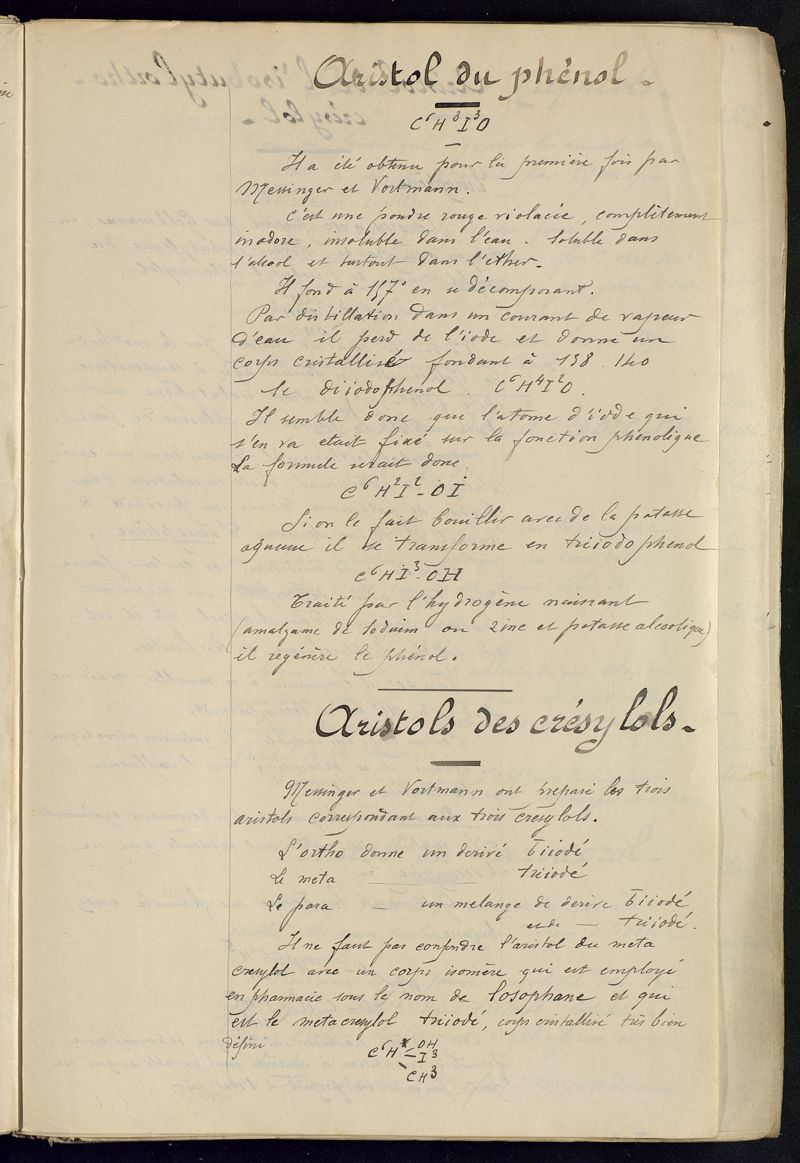 Aristol du phénol -
C⁶H³I³O
Il a été obtenu pour la première fois par
Messinger et Vortmann.
C'est une poudre rouge violacée, complètement
inodore, insoluble dans l'eau. Soluble dans
l'alcool et surtout dans l'ether.
Il fond à 157° en se décomposant.
Par distillation dans un courant de vapeur
d'eau il perd de l'iode et donne un
corps cristallisé fondant à 138.140
le diiodophenol. C⁶H⁴I²O.
Il semble donc que l'atome d'iode qui
s'en va etait fixé sur la fonction phenolique
La formule serait donc.
C⁶H²I²-OI
Si on le fait bouillir avec de la potasse
aqueuse il se transforme en triiodophenol
C⁶HI³-OH
Traité par l'hydrogène naissant
(amalgame de Sodium ou zinc et potasse alcoolique)
il regénère le phénol.
Aristols des crésylols -
Messinger et Vortmann ont préparé les trois
aristols correspondant aux trois cresylols.
L'ortho donne un derivé biiodé
Le meta — triiodé
Le para — un melange de derive biiodé
et de — triiodé.
Il ne faut pas confondre l'aristol du meta
cresylol avec un corps isomère qui est employé
en pharmacie sous le nom de losophane et qui
est le metacresylol triiodé, corps cristallisé très bien
défini
C⁶H - OH
- I³
- CH³